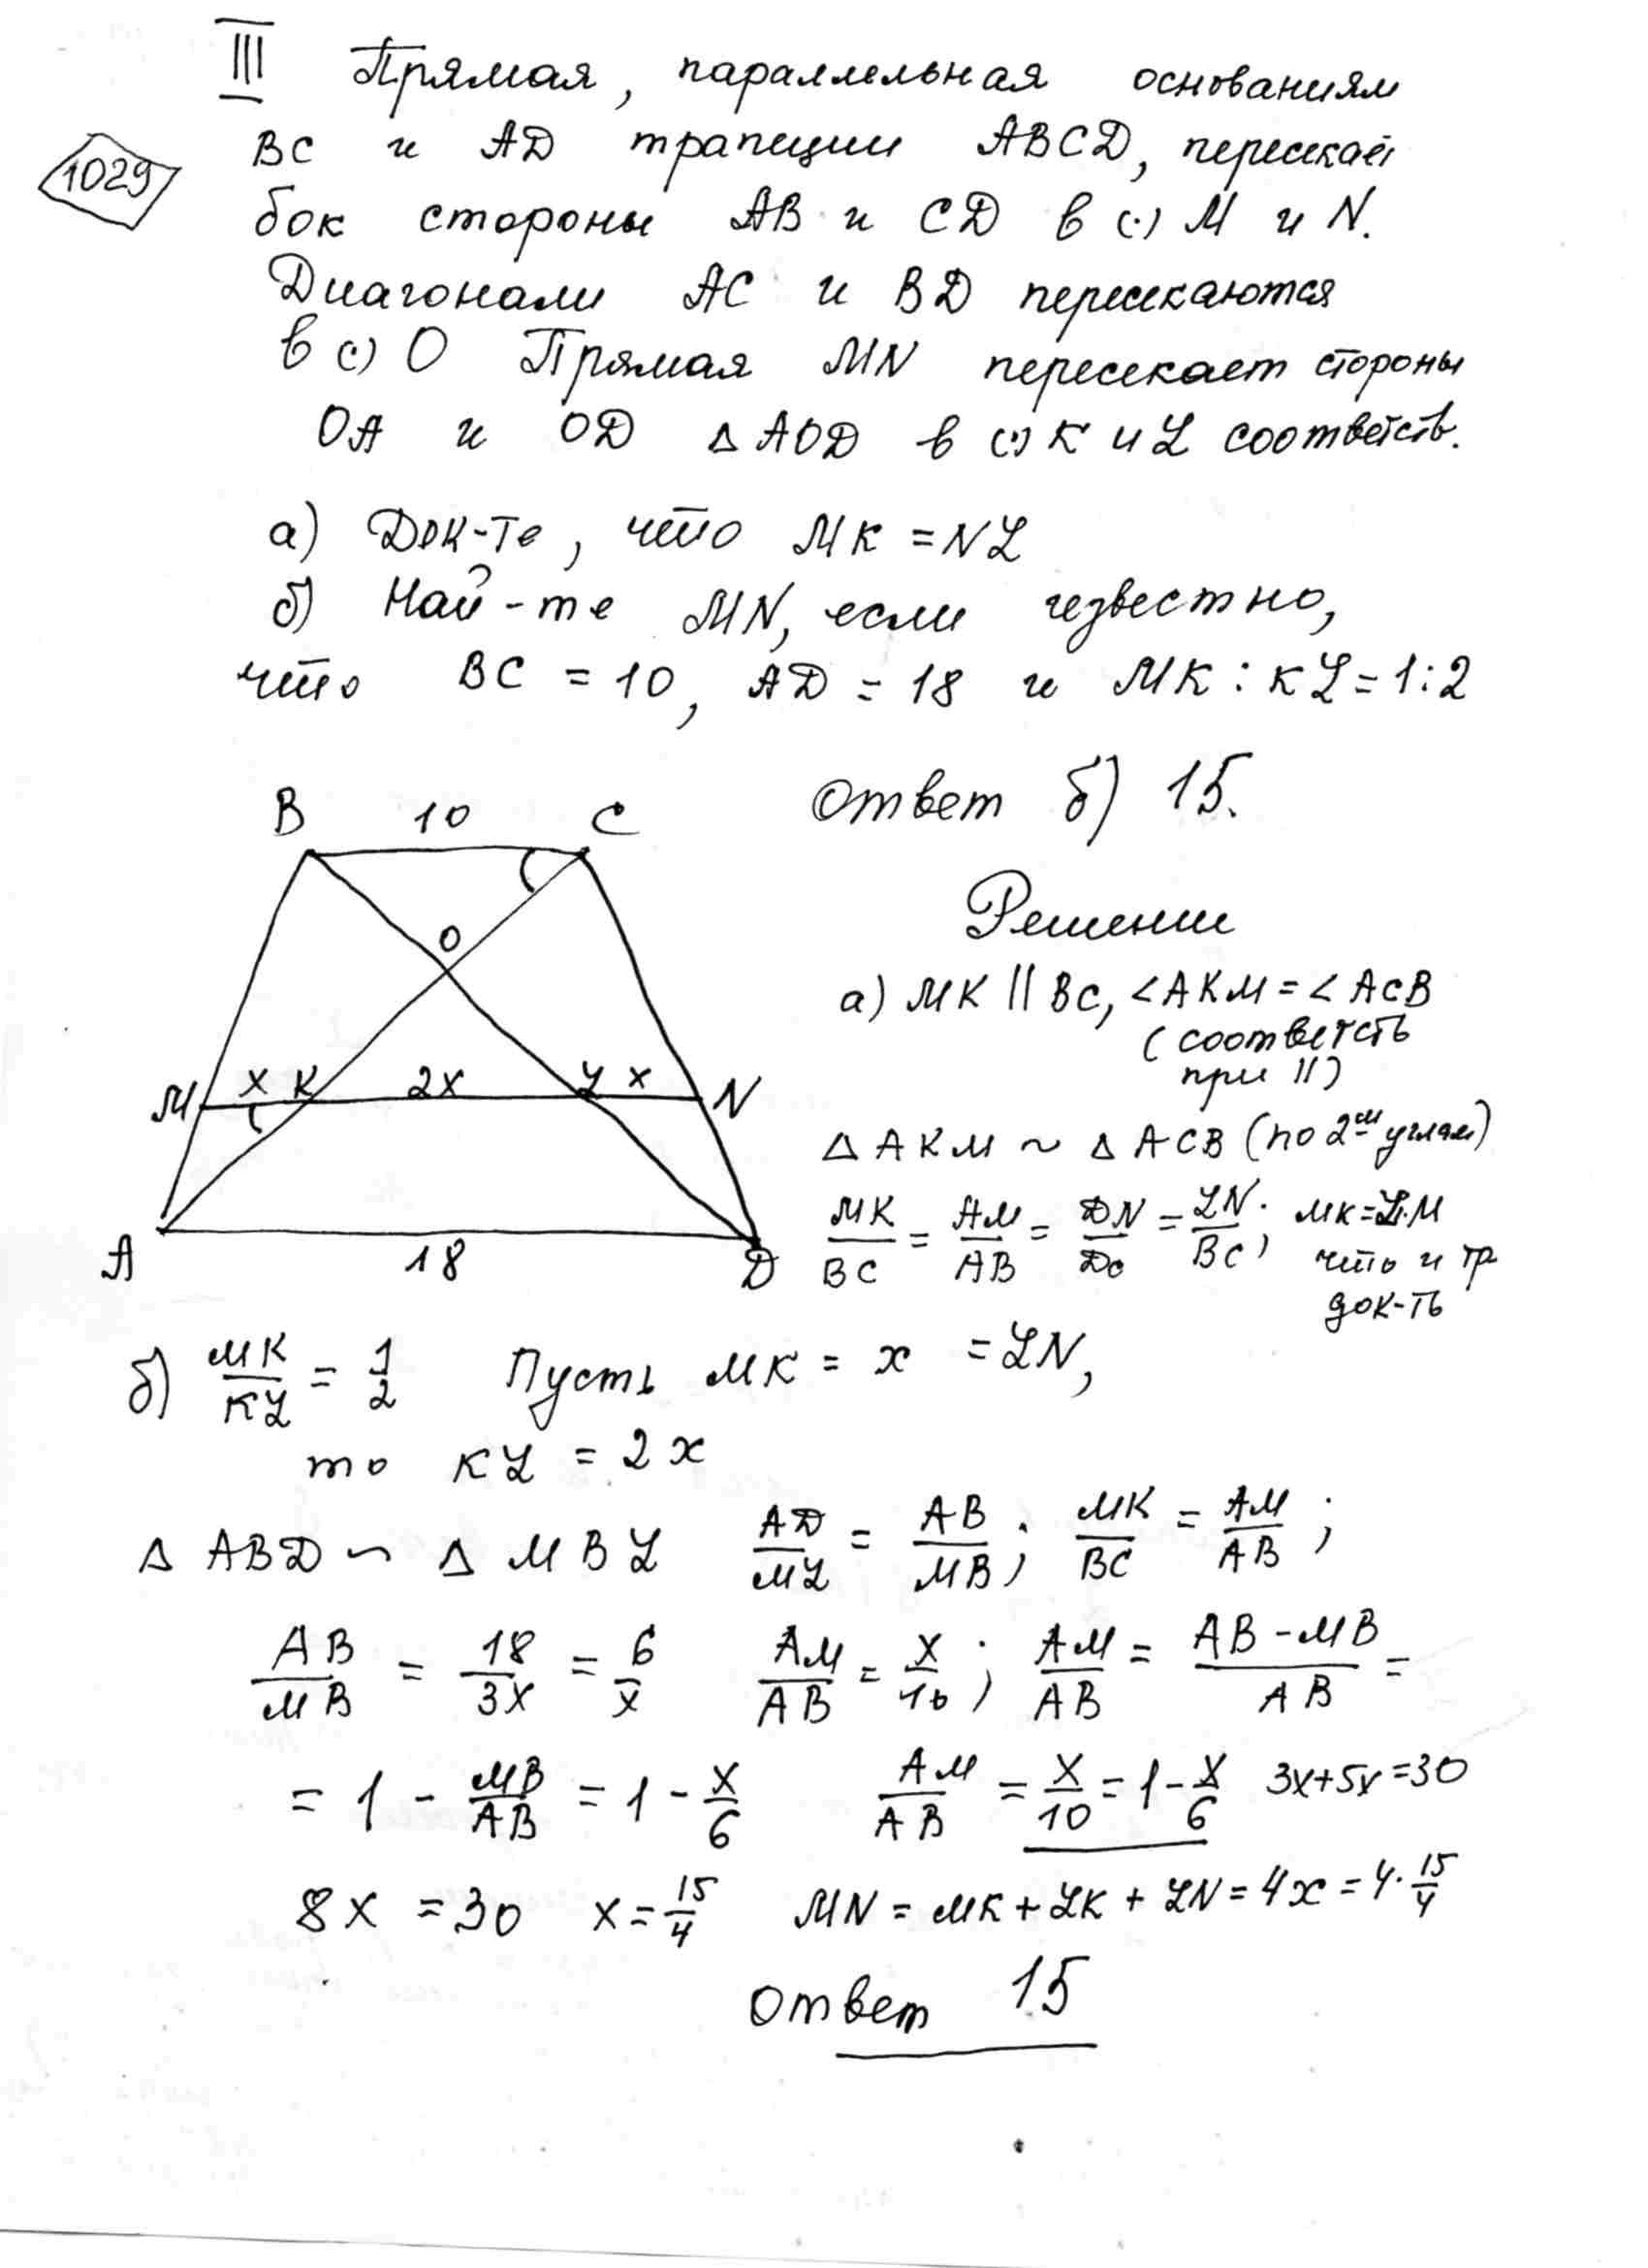 III Прямая, параллельная основаниям
1029
BC и AD трапеции ABCD, пересекает
бок стороны AB и CD в (·) M и N.
Диагонали AC и BD пересекаются
в (·) O Прямая MN пересекает стороны
OA и OD △AOD в (·) K и L соответств.
а) Док-те, что MK = NL
б) Най-те MN, если известно,
что BC = 10, AD = 18 и MK : KL = 1:2
Ответ б) 15.
B 10 C
O
M x K 2x L x N
A 18 D
Решение
а) MK || BC, ∠AKM = ∠ACB
(соответсть
при ||)
△ AKM ~ △ ACB (по 2ум углам)
MK/BC = AM/AB = DN/DC = LN/BC; MK = L·M
что и тр
док-ть
б) MK/KL = 1/2 Пусть MK = x = LN,
то KL = 2x
△ ABD ~ △ MBL AD/ML = AB/MB; MK/BC = AM/AB;
AB/MB = 18/3x = 6/x AM/AB = x/10; AM/AB = AB - MB/AB =
= 1 - MB/AB = 1 - x/6 AM/AB = x/10 = 1 - x/6 3x+5x=30
8x = 30 x = 15/4 MN = MK + LK + LN = 4x = 4·15/4
Ответ 15